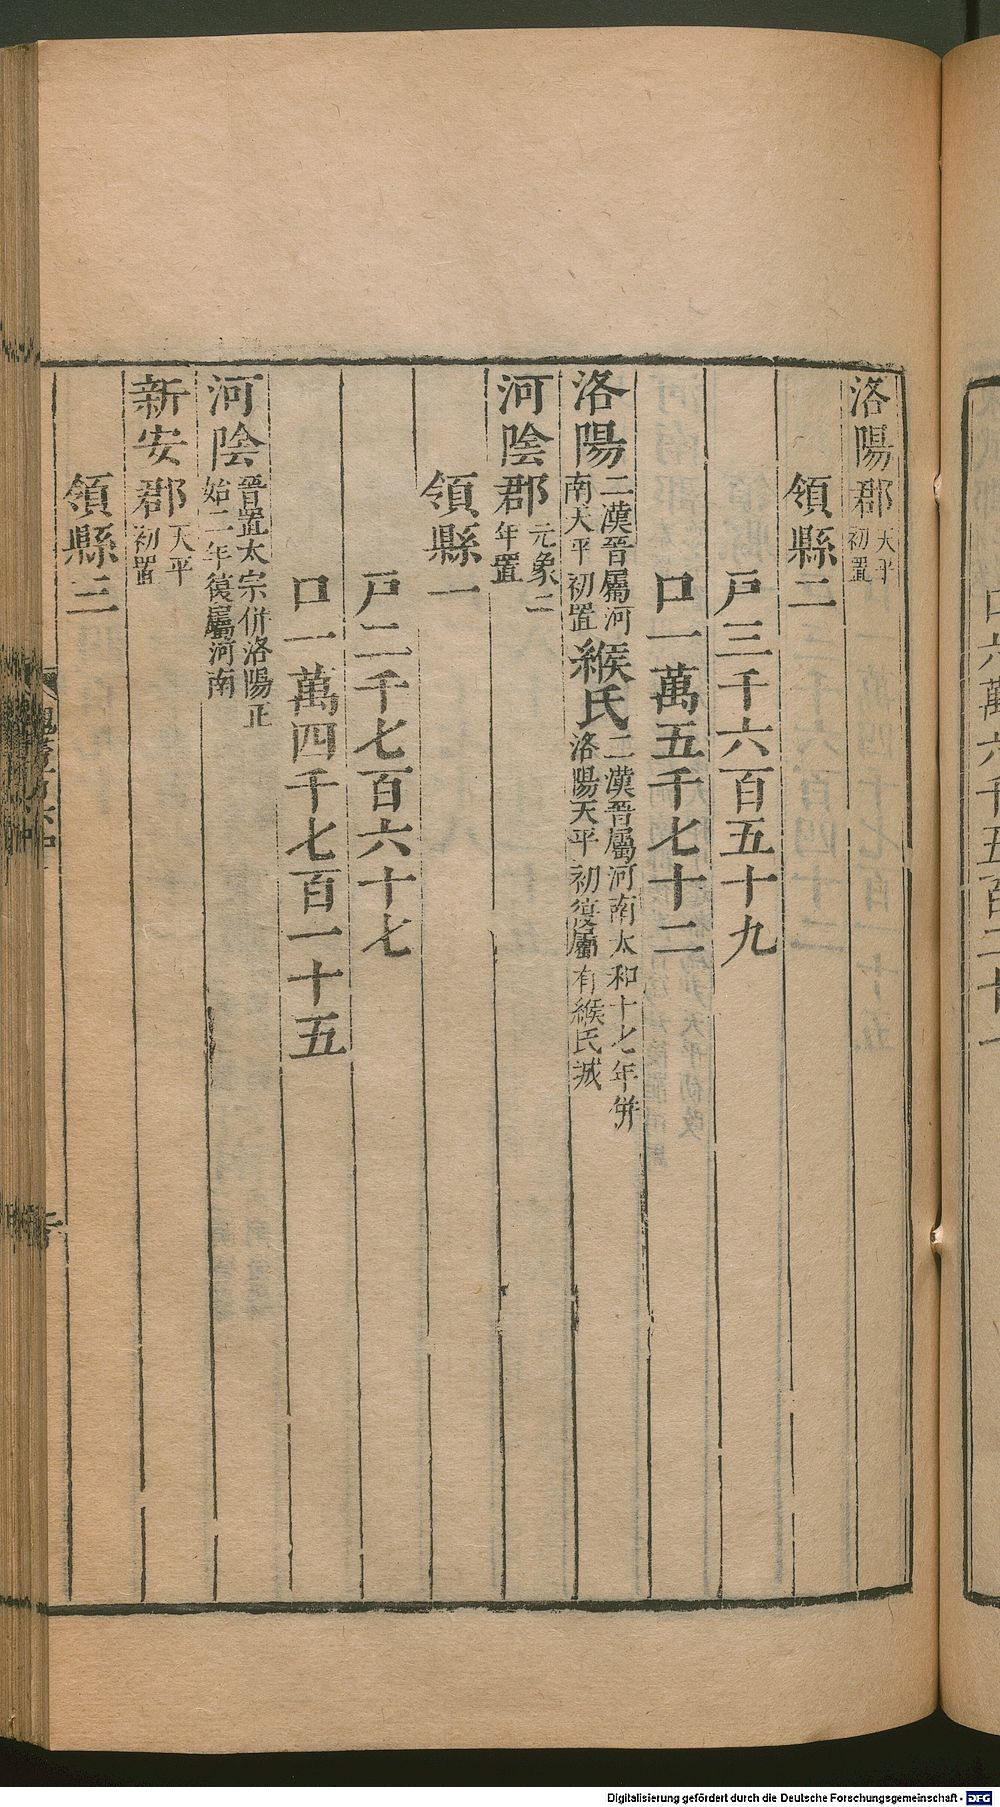 洛陽郡天平初置
領縣二
戸三千六百五十九
口一萬五千七十二
洛陽二漢晉屬河南天平初置緱氏二漢晉屬河南太和十七年併洛陽天平初復屬有緱氏城
河陰郡元象二年置
領縣一
戸二千七百六十七
口一萬四千七百一十五
河陰晉置太宗併洛陽正始二年復屬河南
新安郡天平初置
領縣三
Digitalisierung gefördert durch die Deutsche Forschungsgemeinschaft - DFG